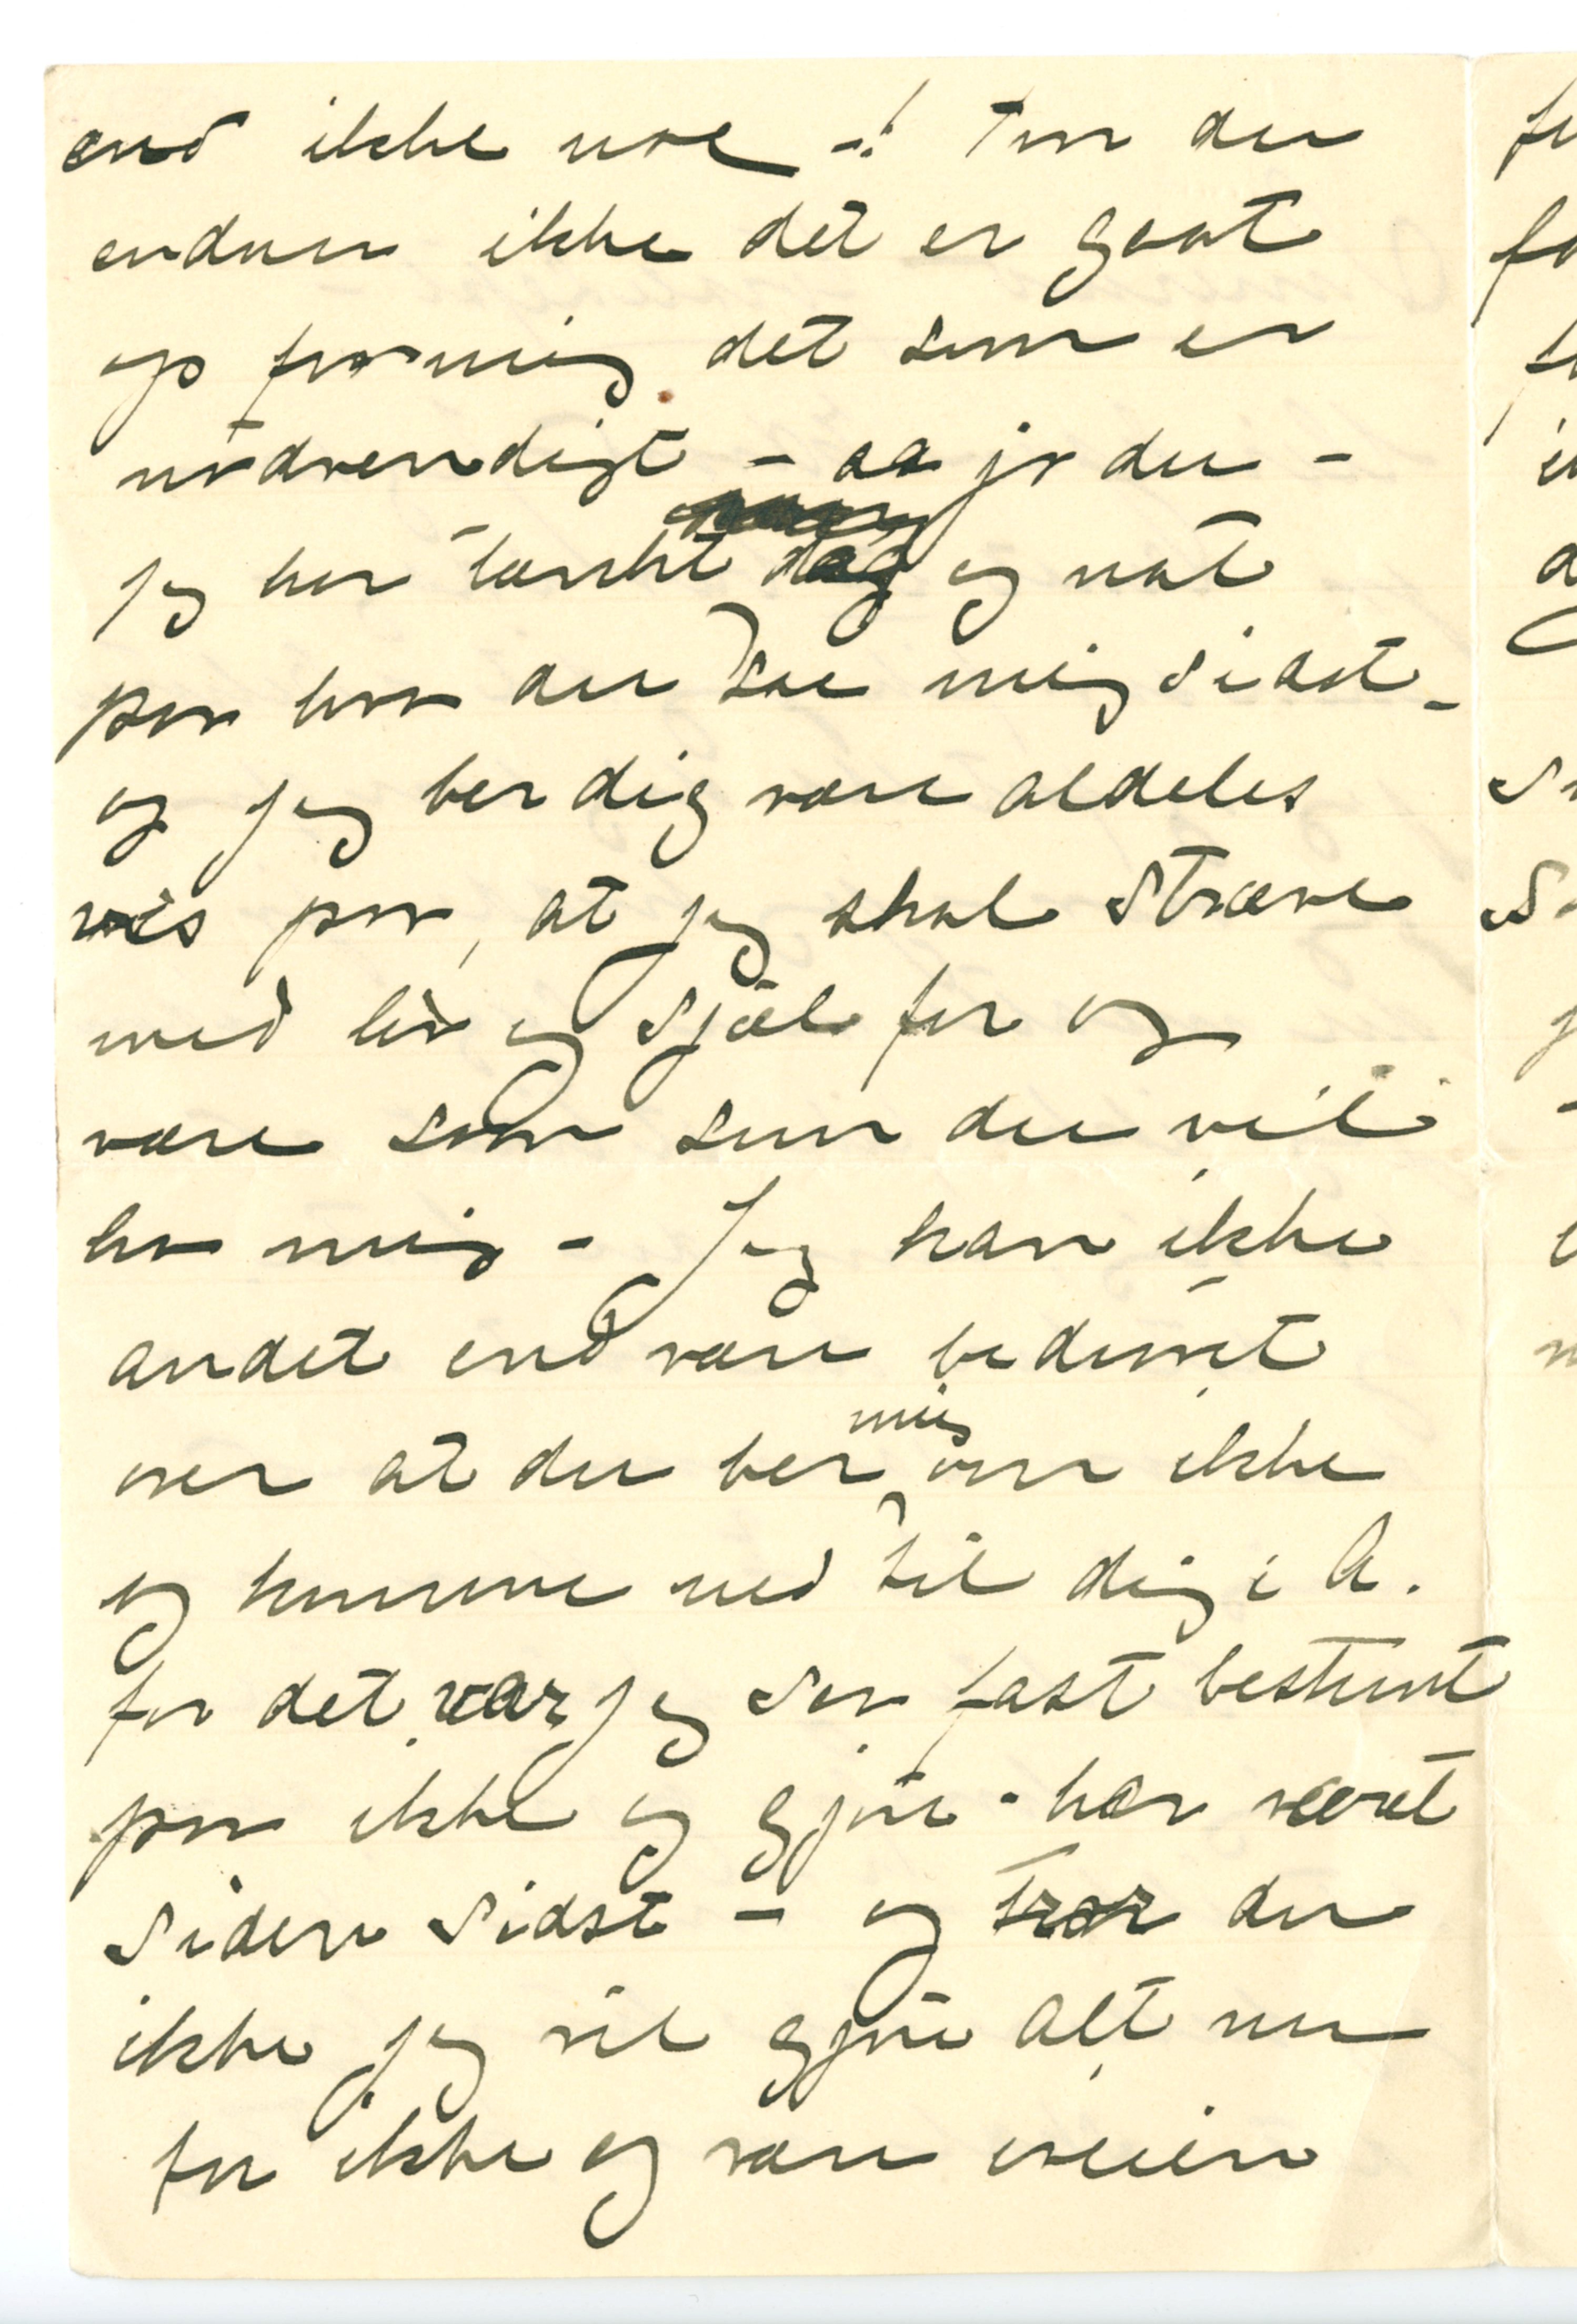 end ikke noe -! Tror du
endnu ikke det er gaat
op for mig det som er
nødvendigt - aa jo du -
jeg har tænkt dag og nat
paa hva du sae mig sidst -
og jeg ber dig være aldeles
vis paa, at jeg skal stræve
med liv og sjæl for og
være saan som du vil
ha mig - Jeg kan ikke
andet end være bedrøvet
over at du ber mig om ikke
og komme ned til dig i A.
for det var jeg saa fast bestemt
paa ikke og gjøre - har været
siden sidst - og tror du
ikke jeg vil gjøre alt nu
for ikke og være iveien